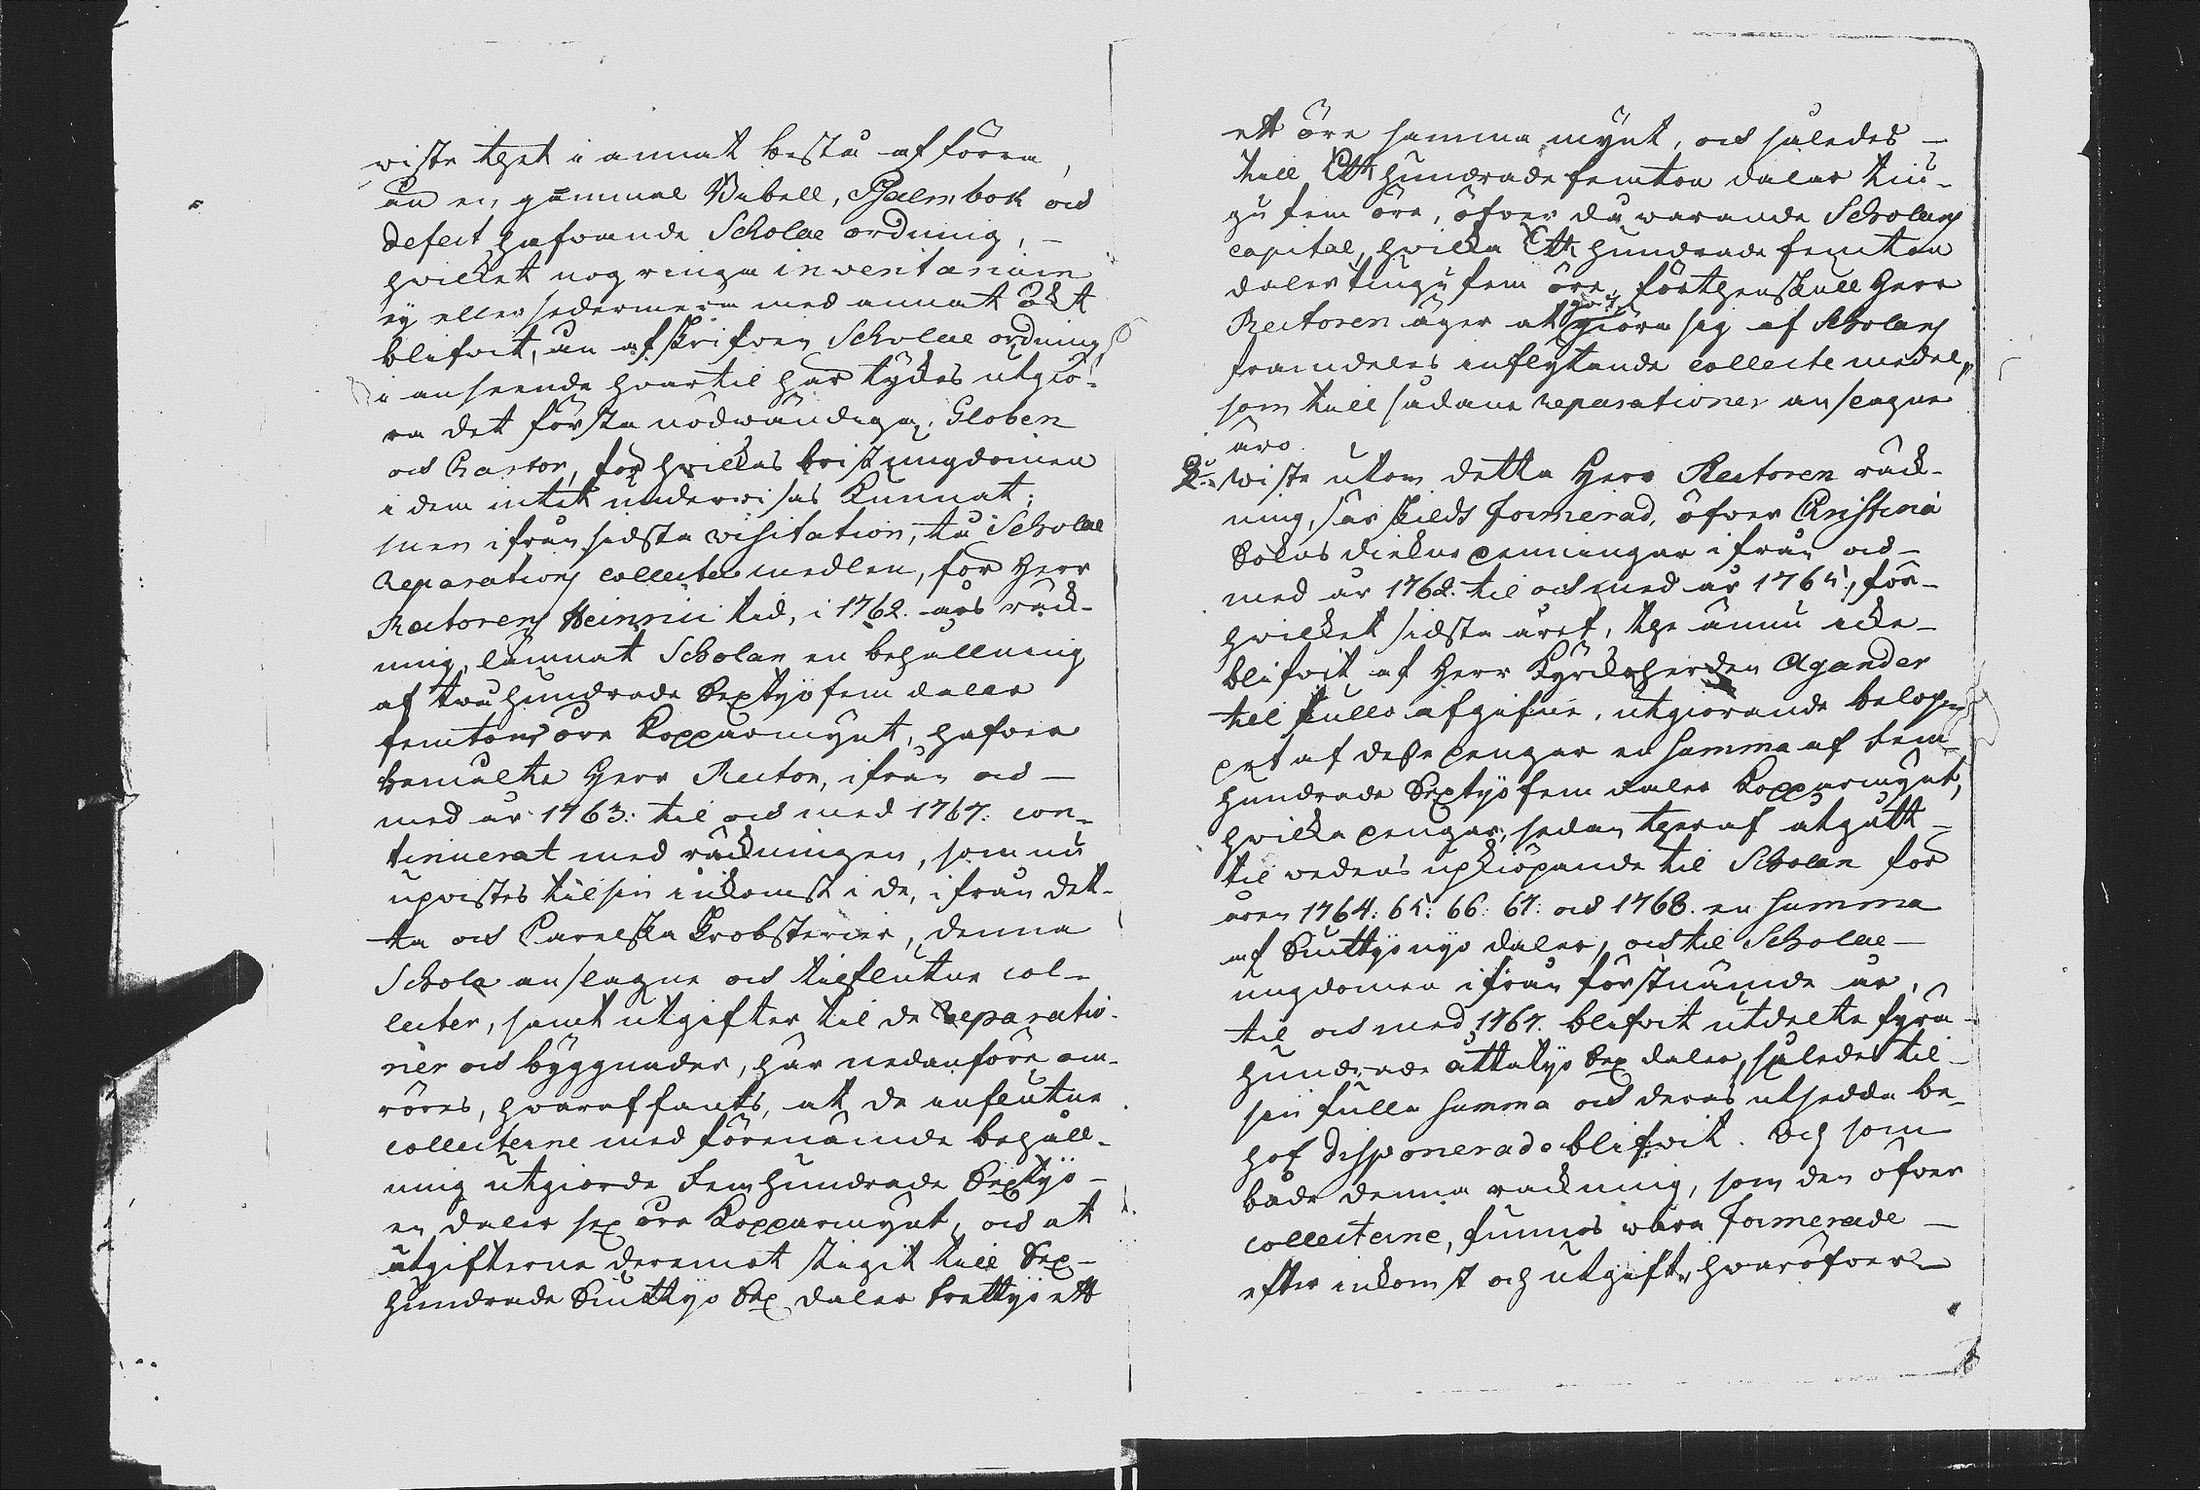 wiste thet i annat bestå af förra,
än en gammal Bibell, Psalmbok och
defect hafvande Scholae ordning, –
hvilket nog ringa inventarium
ej eller sedermera med annat ökt
blifvit, än afskrifven Scholae ordning,
i anseende hvartil här tyckes utgiö-
ra det första nödwändiga, Globen
och Chartor, for hvilkas brist ungdomen
i dem intet underwisas kunnat;
men ifrån sidsta visitation, då Scholae
Reparations collecte medlen, for Herr
Rectorens Heinrici tid, i 1762. års räck-
ning, lämnat Scholan en behållning
af tvåhundrade Sextijo fem daler
femton öre Kopparmynt, hafver
bemälte Herr Rector, ifrån och –
med år 1763: til och med 1767: con-
tinuerat med räckningen, som nu
upwistes til sin inkomst i de, ifrån det-
ta och Carelska Probsterier, denna
Schola anslagne och tilflutne col-
lecter, samt utgifter til de Reparatio-
ner och byggnader, här nedanföre om-
röres, hvaraf fants, at de influtne
collecterne med förenämde behåll-
ning utgiorde Femhundrade Sextijo –
en daler sex öre Kopparmynt, och at
utgifterna deremot stigit till Sex-
hundrade Siuttijo Sex daler trettijo ett
ett öre samma mynt, och således –
till Ett hundrade femton daler tiu-
gu fem öre, öfver då warande Scholans
capital, hvilka Ett hundrade femton
daler tiugu fem öre, förthenskull Herr
Rectoren äger at giöra sig af Scholans
framdeles inflytande collecte medel,
som till sådane reparationer anslagne
äro.
2:o wiste utom detta Herr Rectoren räck-
ning, särskildt formerad, öfver Christinä
Sokns diekne penningar ifrån och –
med år 1762. til och med år 1765, för –
hvilket sidsta året, the ännu icke –
blifvit af Herr Kyrckoherden Agander
til fullo afgifne, utgiorande belop-
pet af desse pengar en Summa af fem-
hundrade Sextijo fem daler Kopparmynt,
hvilka pengar, sedan theraf utgått –
til wedens upkiöpande til Scholan for
åren 1764: 65: 66: 67: och 1768. en Summa
af Siuttijo nijo daler, och til Scholae –
ungdomen ifrån förstnämde år,
til och med 1767. blifvit utdelte fyra-
hundrade åttatijo Sex daler, således til –
sin fulla Summa och deras utsedda be-
hof disponerade blifvit. Och som
både denna räckning, som den öfver
collecterne, funnos wara formerade –
efter inkomst och utgift, hvaröfver